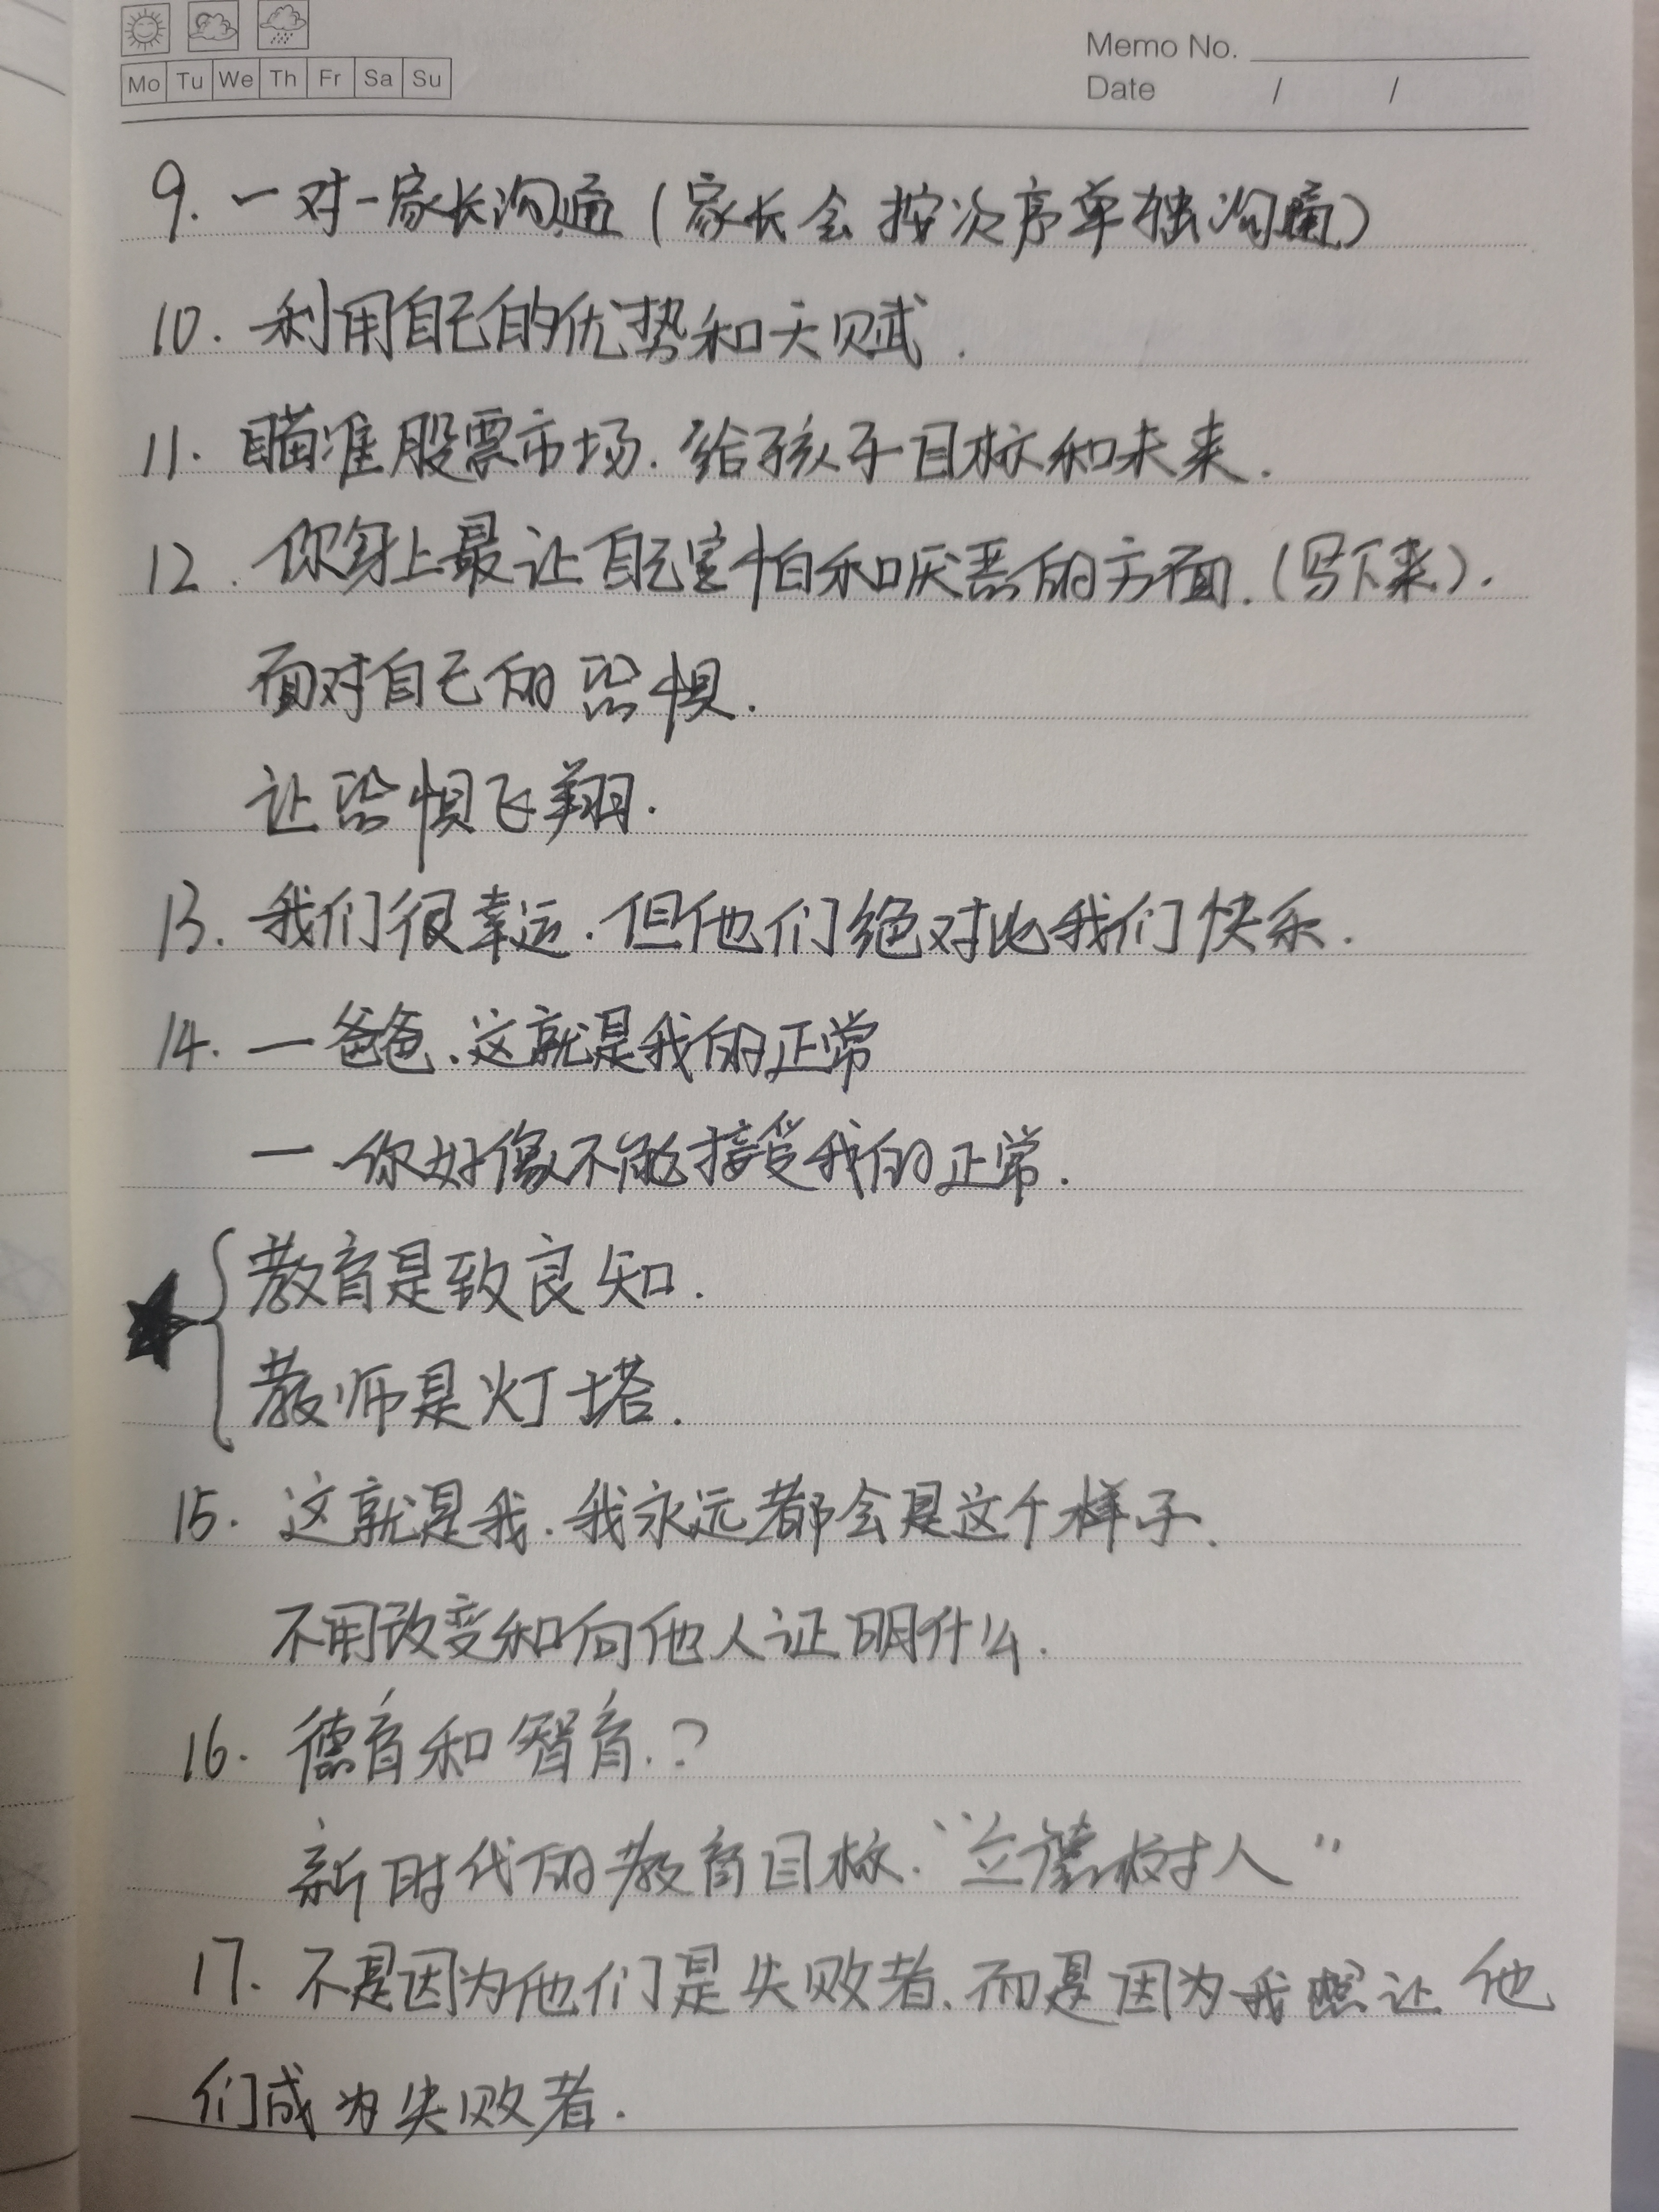 Memo No.
Mo Tu We Th Fr Sa Su
Date / /
9. 一对一家长沟通(家长会按次序单独沟通)
10. 利用自己的优势和天赋.
11. 瞄准股票市场.给孩子目标和未来.
12. 你身上最让自己害怕和厌恶的方面.(写下来).
面对自己的恐惧.
让恐惧飞翔.
13. 我们很幸运.但他们绝对比我们快乐.
14. 一爸爸.这就是我的正常
一.你好像不能接受我的正常.
教育是致良知.
教师是灯塔.
15. 这就是我.我永远都会是这个样子.
不用改变和向他人证明什么.
16. 德育和智育.?
新时代的教育目标.“立德树人”
17. 不是因为他们是失败者.而是因为我想让他
们成为失败者.